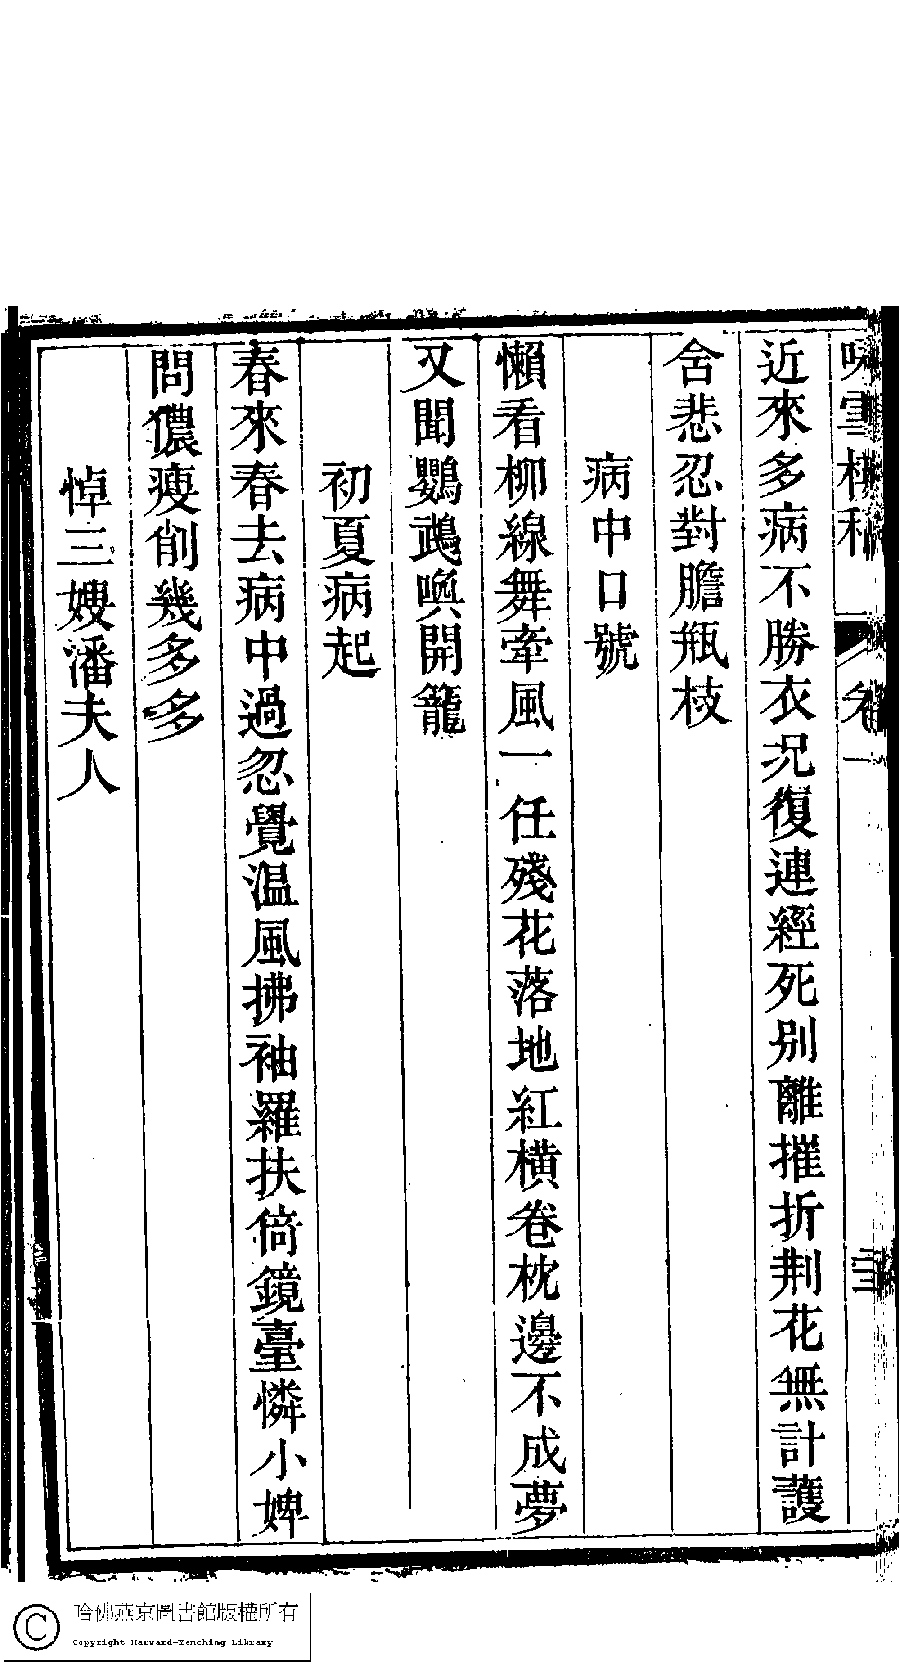 近來多病不勝衣況復連經死別離摧折荆花無計護
舍悲忍對膽瓶枝
病中口號
懶看柳線舞牽風一任殘花落地紅橫卷枕邊不成夢
又聞鸚鵡喚開籠
初夏病起
春來春去病中過忽覺温風拂袖羅扶倚鏡臺憐小婢
問儂瘦削幾多多
悼三嫂潘夫人
哈佛燕京圖書館版權所有
Copyright Harvard-Yenching Library